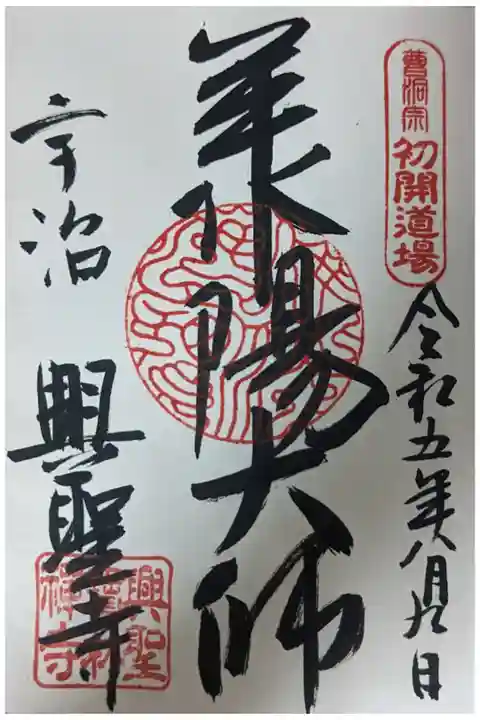 曹洞宗 初開道場
令和五年八月九日
承陽大師
宇治
興聖寺
興聖
寶林
禅寺